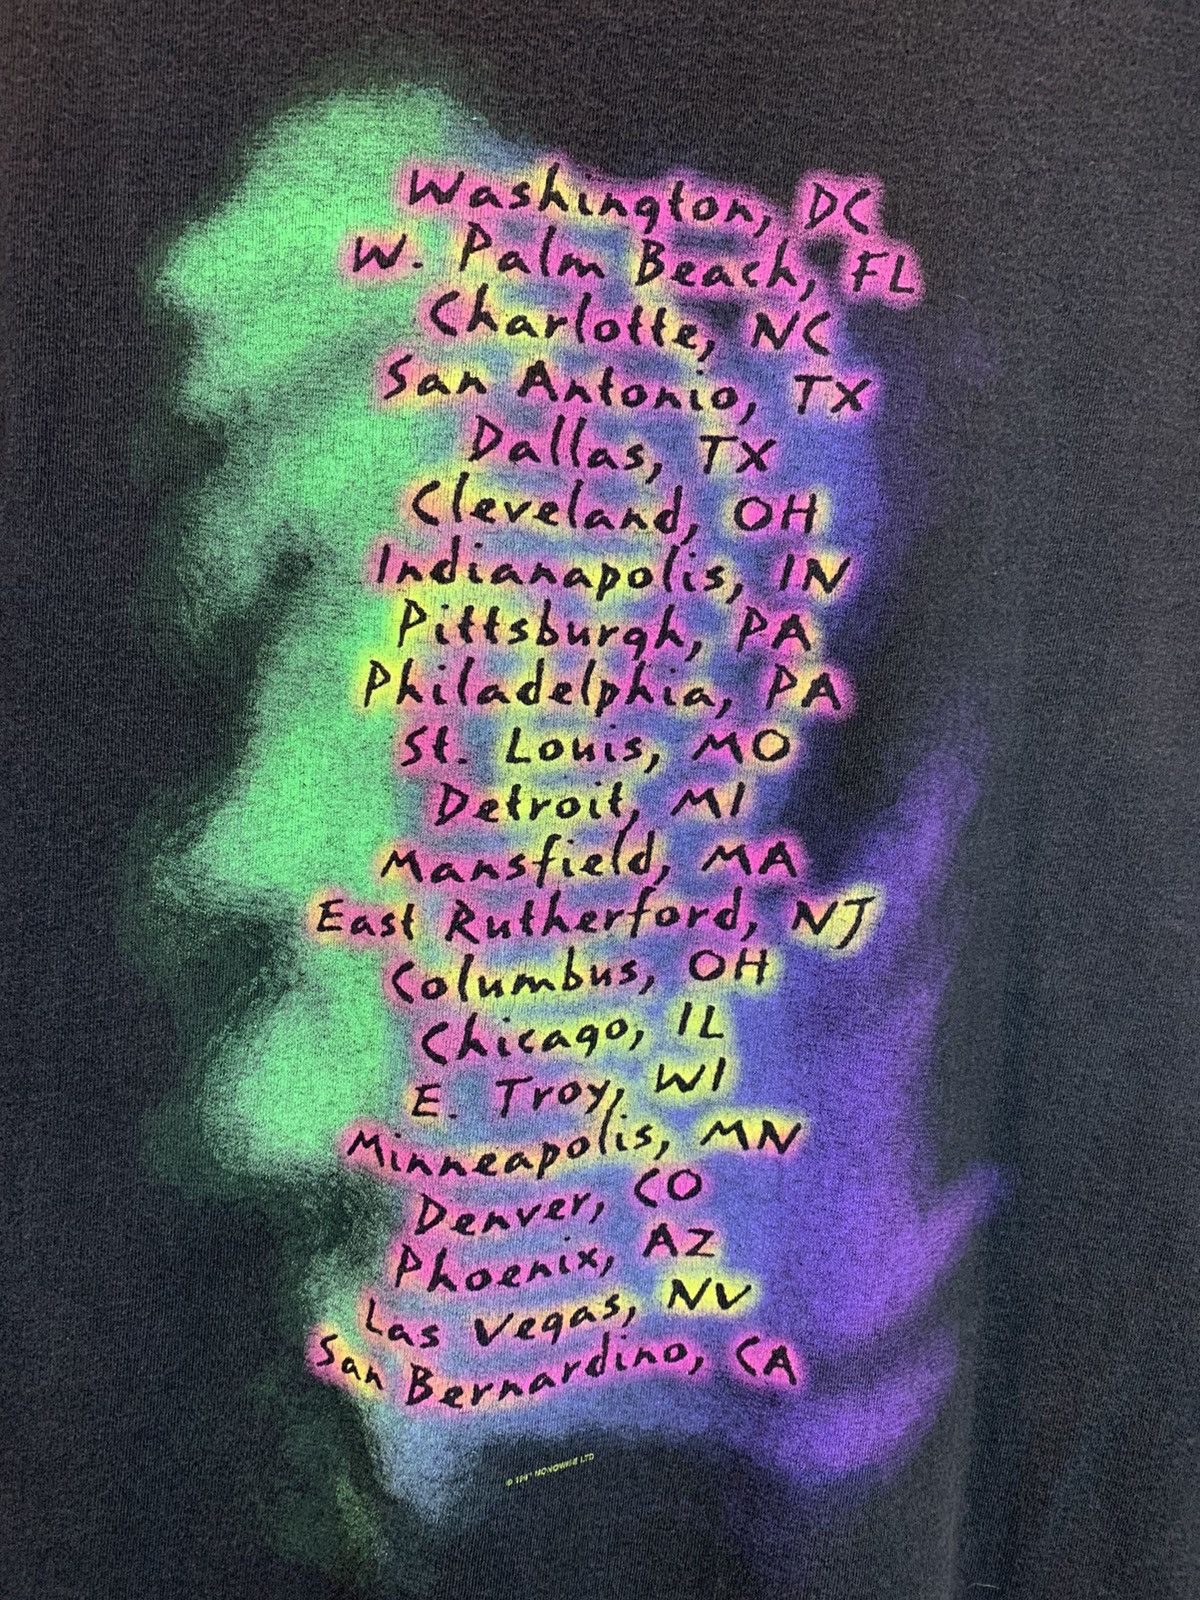 Washington, DC
W. Palm Beach, FL
Charlotte, NC
San Antonio, TX
Dallas, TX
Cleveland, OH
Indianapolis, IN
Pittsburgh, PA
Philadelphia, PA
St. Louis, MO
Detroit, MI
Mansfield, MA
East Rutherford, NJ
Columbus, OH
Chicago, IL
E. Troy, WI
Minneapolis, MN
Denver, CO
Phoenix, AZ
Las Vegas, NV
San Bernardino, CA
© LTD